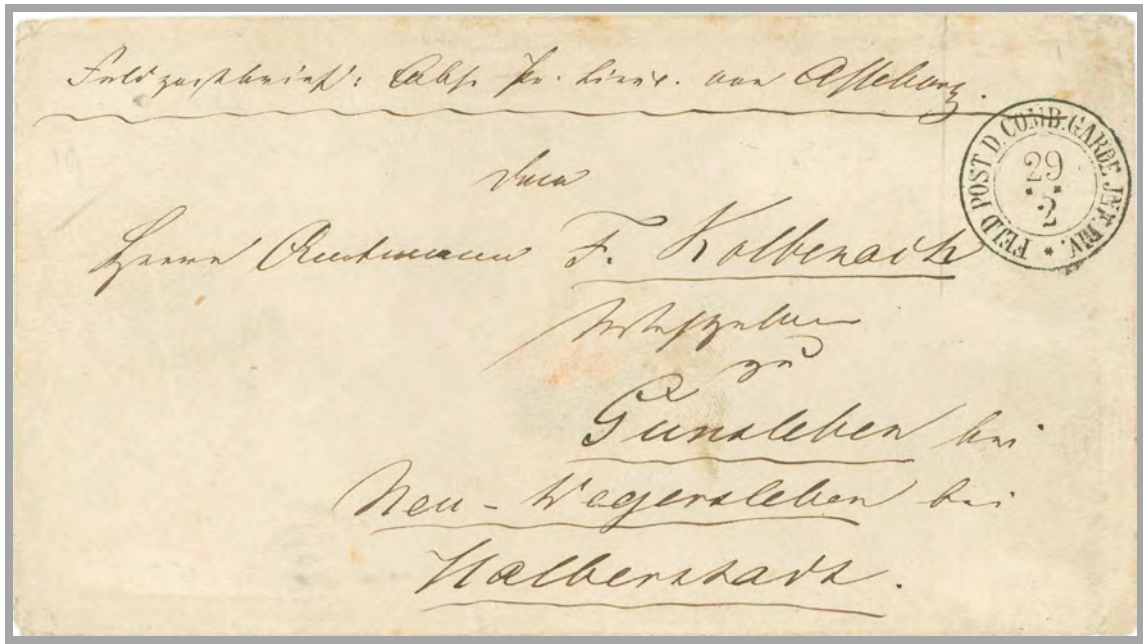 Feldpostbrief: Abs. Pr. Lieut. von Asseburg.
FELD POST D. COMB. GARDE. INF. DIV.
29
2
Dem
Herrn Amtmann F. Kolbenach
zu
Gunsleben bei
Neu-Wegersleben bei
Halberstadt.